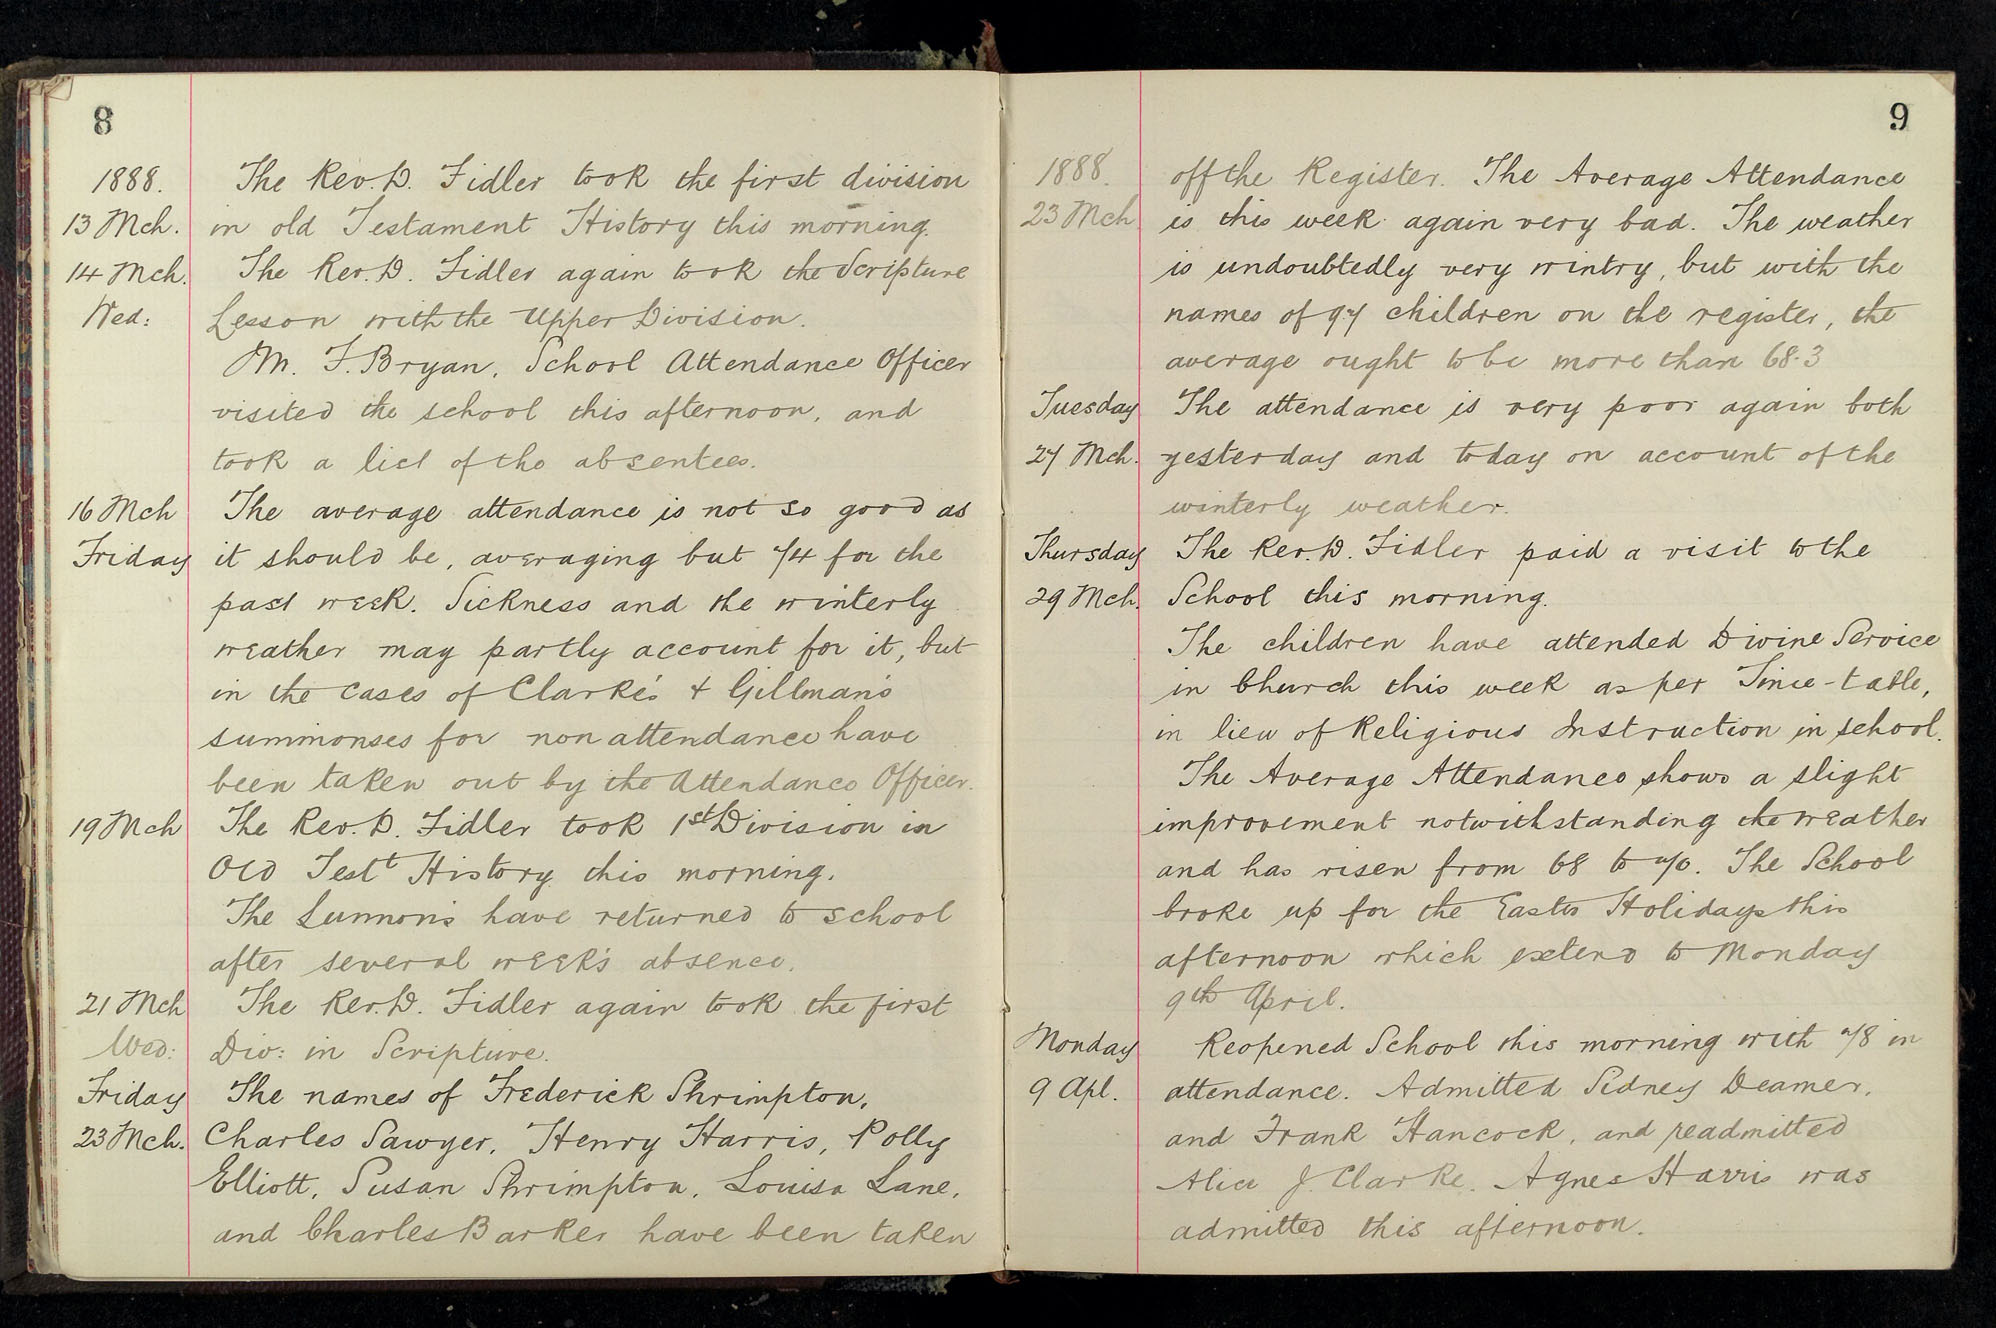 8
1888. The Rev. D. Fidler took the first division
13 Mch. in old Testament History this morning.
14 Mch. The Rev. D. Fidler again took the Scripture
Wed: Lesson with the Upper Division.
M. F. Bryan, School Attendance Officer
visited the school this afternoon, and
took a list of the absentees.
16 Mch The average attendance is not so good as
Friday it should be, averaging but 74 for the
past week. Sickness and the winterly
weather may partly account for it, but
in the cases of Clarke's & Gillman's
summonses for non attendance have
been taken out by the Attendance Officer.
19 Mch The Rev. D. Fidler took 1st Division in
Old Testt History this morning.
The Lunnon's have returned to school
after several week's absence.
21 Mch The Rev. D. Fidler again took the first
Wed: Div: in Scripture.
Friday The names of Frederick Shrimpton,
23 Mch. Charles Sawyer, Henry Harris, Polly
Elliott, Susan Shrimpton, Louisa Lane,
and Charles Barker have been taken
9
1888. off the Register. The Average Attendance
23 Mch is this week again very bad. The weather
is undoubtedly very wintry, but with the
names of 97 children on the register, the
average ought to be more than 68.3
Tuesday The attendance is very poor again both
27 Mch. yesterday and today on account of the
winterly weather.
Thursday The Rev. D. Fidler paid a visit to the
29 Mch. School this morning.
The children have attended Divine Service
in Church this week as per Time-table,
in lieu of Religious Instruction in school.
The Average Attendance shows a slight
improvement notwithstanding the weather
and has risen from 68 to 70. The School
broke up for the Easter Holidays this
afternoon which extend to Monday
9th April.
Monday Reopened School this morning with 78 in
9 Apl. attendance. Admitted Sidney Deamer,
and Frank Hancock, and readmitted
Alice J. Clarke. Agnes Harris was
admitted this afternoon.